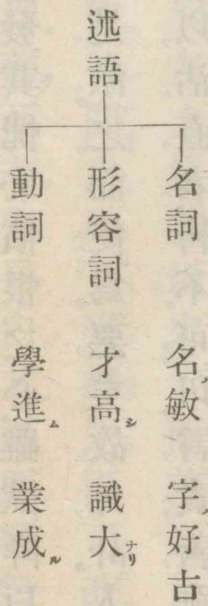 述語
名詞 名ノ敏 字ノ好古
形容詞 才高シ 識大ナリ
動詞 學進ム 業成ル